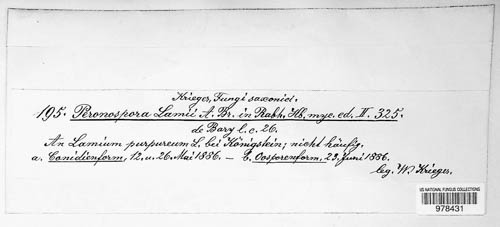 Krieger, Fungi saxonici.
195. Peronospora Lamii A. Br. in Rabh. Hb. myc. ed. II. 325.
de Bary l. c. 26.
An Lamium purpureum L. bei Königstein; nicht häufig.
a. Conidienform, 12. u. 26. Mai 1886. — b. Oosporenform, 23. Juni 1886.
leg. W. Krieger.
US NATIONAL FUNGUS COLLECTIONS
978431